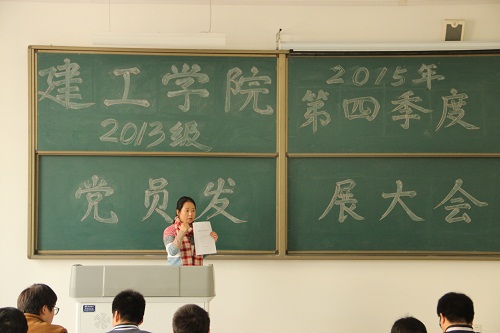 建工学院
2013级
2015年
第四季度
党员发展大会